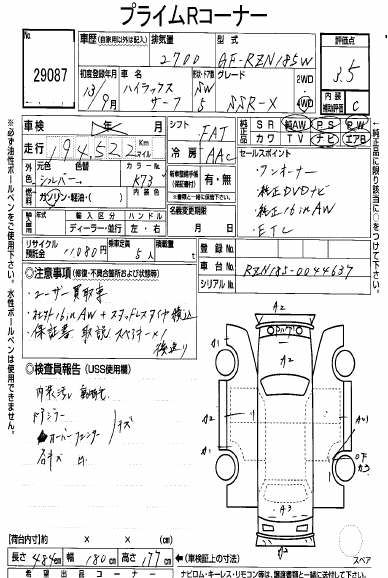 プライムRコーナー
29087
車歴 (自家用以外は記入) 排気量 型式
2700 GF-RZN185W
評価点
3.5
初度登録年月 車名 ドア形状 グレード
13/9月 ハイラックスサーフ 5 SSR-X 2WD 4WD
内装補助評価 C
車検 年 月
シフト FAT
純正品 SR 純AW PS PW
カワ TV ナビ エアB
走行 194,522 Km マイル
冷房 AAC
セールスポイント
ワンオーナー
純正DVDナビ
純正16inAW
ETC
外色 元色 色替 カラーNo.
シルバー KT3
新車整備手帳(保証書付) 有・無
燃料 ガソリン・軽油・( ) 内装色
輸入区分 ハンドル
ディーラー・並行 左・右
名義変更期限 月 日
リサイクル預託金 11080円 乗車定員 5人 積載量 t
登録No.
車台No. RZN185-0044637
シリアルNo.
◎注意事項 (修復・不具合箇所および状態等)
・ユーザー買取車
16inAW+スタッドレスタイヤ積込
・保証書 取説 スペアキー×1
後送り
◎検査員報告 (USS使用欄)
内装汚レ
ドアミラー
オーバーフェンダー キズ
石キズ
A2
A2
A1
A1
A3
A2
スペア
[荷台内寸] × × (cm)
長さ 484cm 幅 180cm 高さ 177cm ←(車検証上の寸法)
希望出品コーナー
ナビロム・キーレス・リモコン等は、譲渡書類と一緒に送付して下さい。
※必ず油性ボールペンをご使用下さい。水性ボールペンは使用できません。